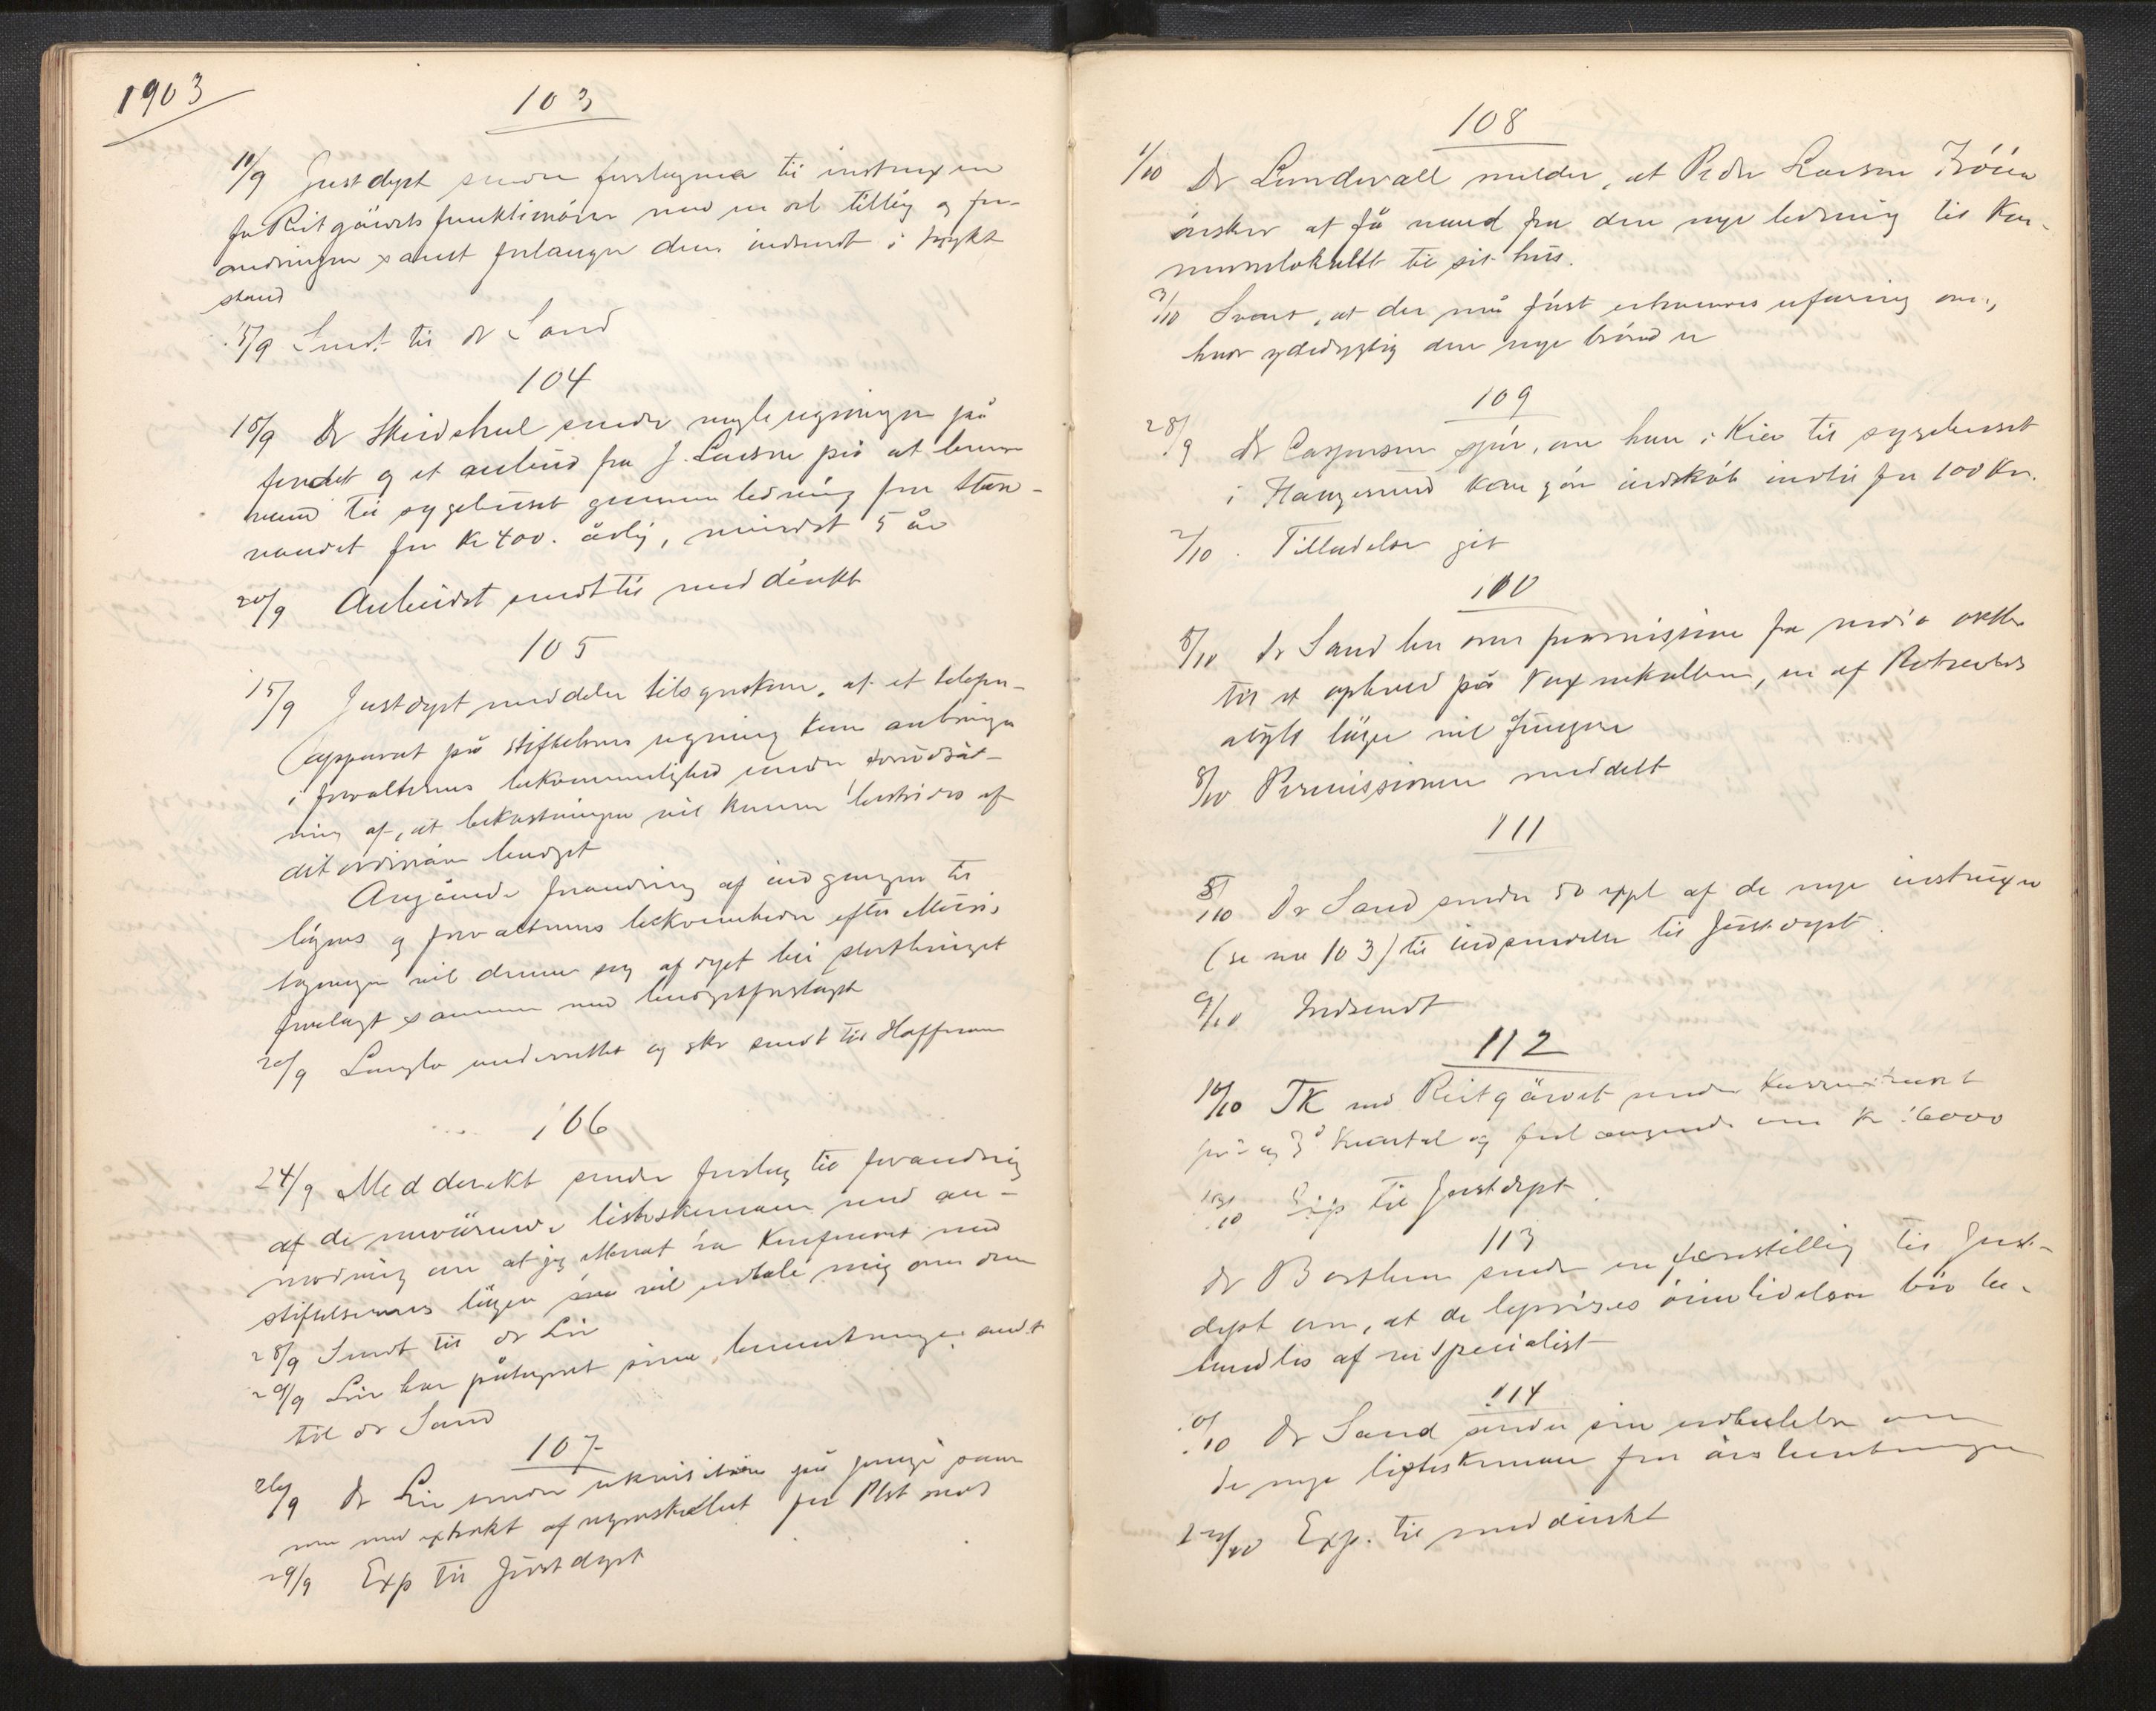 1903
103
11/9 Justdept sender forslagene til instruxen
for Reitgjærdets funktionærer med en del tillæg og for-
andringer samt forlanger dem indsendt i trykt
stand
15/9 Sendt til dr Sand
104
18/9 Dr sender nogle regninger på
fondet og et anbud fra J. Larsen på at levere
vand til sygehuset gjennem ledning fra
vandet for Kr 400. årlig, mindst 5 år
20/9 Anbudet sendt til meddirekt
105
15/9 Justdept meddeler tilsynskom. at et telefon-
apparat på stiftelsens regning kan anbringes
i forvalterens bekvemmelighed under forudsæt-
ning af, at bekostningen vil kunne bestrides af
det ordinære budget
Angående forandring af indgangen til
lægens og forvalterens bekvemheder efter Minis
tagningen vil denne sag af dept bli storthinget
forelagt sammen med budgetforslaget
20/9 underrettet og skr sendt til Hoffman
106
24/9 Meddirekt sender forslag til forandring
af de nuværende listeskemaer med an-
modning om at jeg efterat ha konfereret med
stiftelsernes læger vil udtale mig om dem
28/9 Sendt til dr Lie
29/9 Lie har påtegnet sine bemerkninger sendt
til dr Sand
107
26/9 dr Lie sender rekvisition på penge sam
men med extrakt af regnskabet for Plst no 1
29/9 Exp til Justdept
108
1/10 Dr Lundevall melder, at Peder Larsen
ønsker at få vand fra den nye ledning til Kom-
munelokalet til sit hus.
3/10 Svart, at der må først erhverves erfaring om,
hvor ydedygtig den nye brønd er
109
28/9 Dr Caspersen spør, om han i Kiær til sygehuset
i Haugesund kan gjøre indkøb indtil for 100 Kr.
2/10. Tilladelse git
110
5/10 dr Sand ber om permission fra midio oktbr
til et ophold på, en af Rotvolds
asyls læger vil fungere
8/10 Permissionen meddelt
111
8/10 Dr Sand sender 50 expl af de nye instruxer
(se no 103) til indsendelse til Justdept.
9/10 Indsendt
112
10/10 TK ved Reitgjærdet sender
for 3d Kvartal og forlangende om Kr 6000
13/10 Exp til Justdept.
113
dr Borthen sender en forestilling til Just-
dept om, at de leprøses øienlidelser bør be-
handles af en specialist
114
10/10 dr Sand sender sin udtalelse om
de nye listeskemaer for årsberetningen
22/10 Exp. til meddirekt